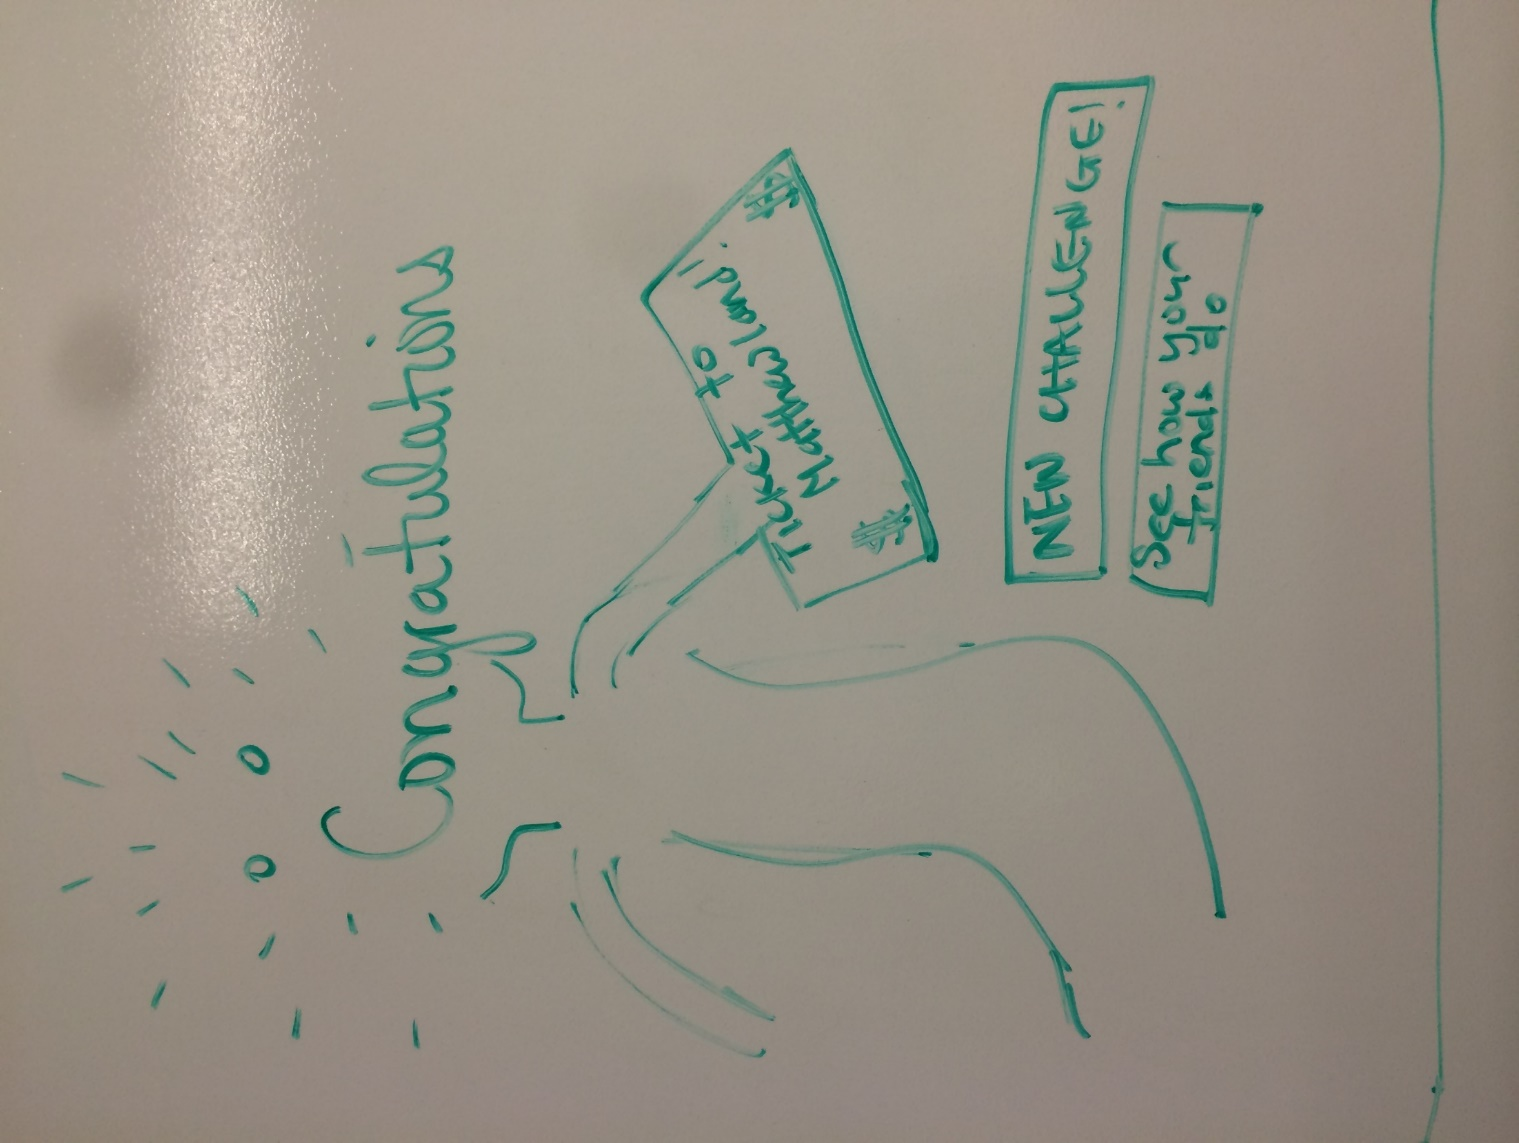 Congratulations
Ticket to
'Matthewland'
$
$
NEW CHALLENGE!
See how your
friends do